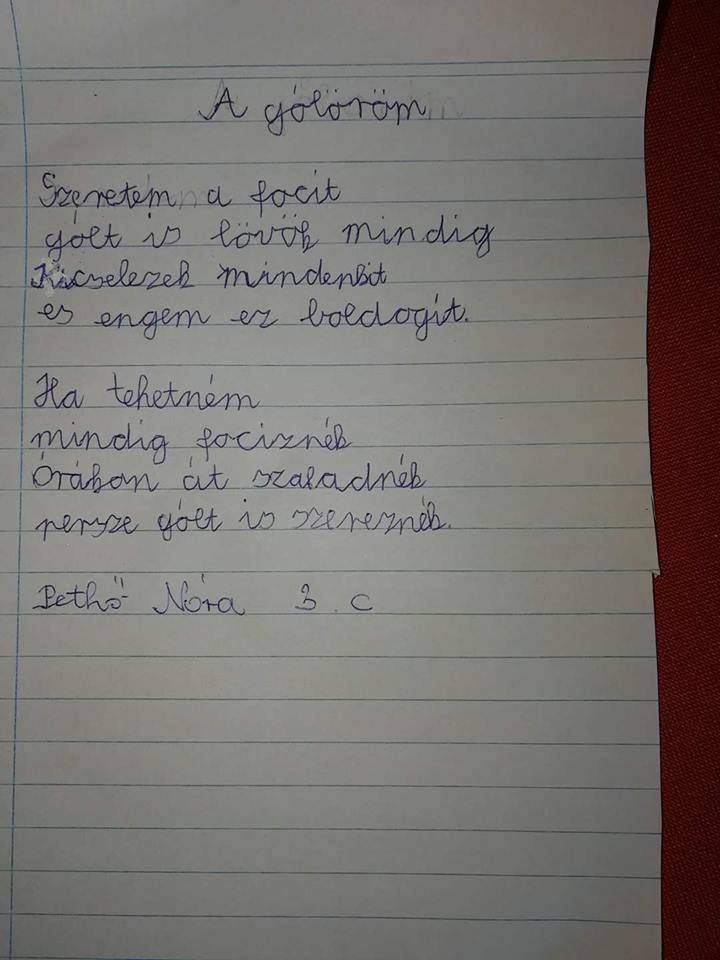 A gólöröm
Szeretem a focit
gólt is lövök mindig
Kicselezek mindenkit
es engem ez boldogít.
Ha tehetném
mindig fociznék
Órákon át szaladnék
persze gólt is szereznék.
Pethő Nóra 3. c